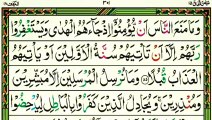 وَمَا مَنَعَ النَّاسَ اَنْ يُّؤْمِنُوْٓا اِذْ جَآءَهُمُ الْهُدٰى وَيَسْتَغْفِرُوْا
رَبَّهُمْ اِلَّآ اَنْ تَاْتِيَهُمْ سُنَّةُ الْاَوَّلِيْنَ اَوْ يَاْتِيَهُمُ
الْعَذَابُ قُبُلًا وَمَا نُرْسِلُ الْمُرْسَلِيْنَ اِلَّا مُبَشِّرِيْنَ
وَمُنْذِرِيْنَ وَيُجَادِلُ الَّذِيْنَ كَفَرُوْا بِالْبَاطِلِ لِيُدْحِضُوْا